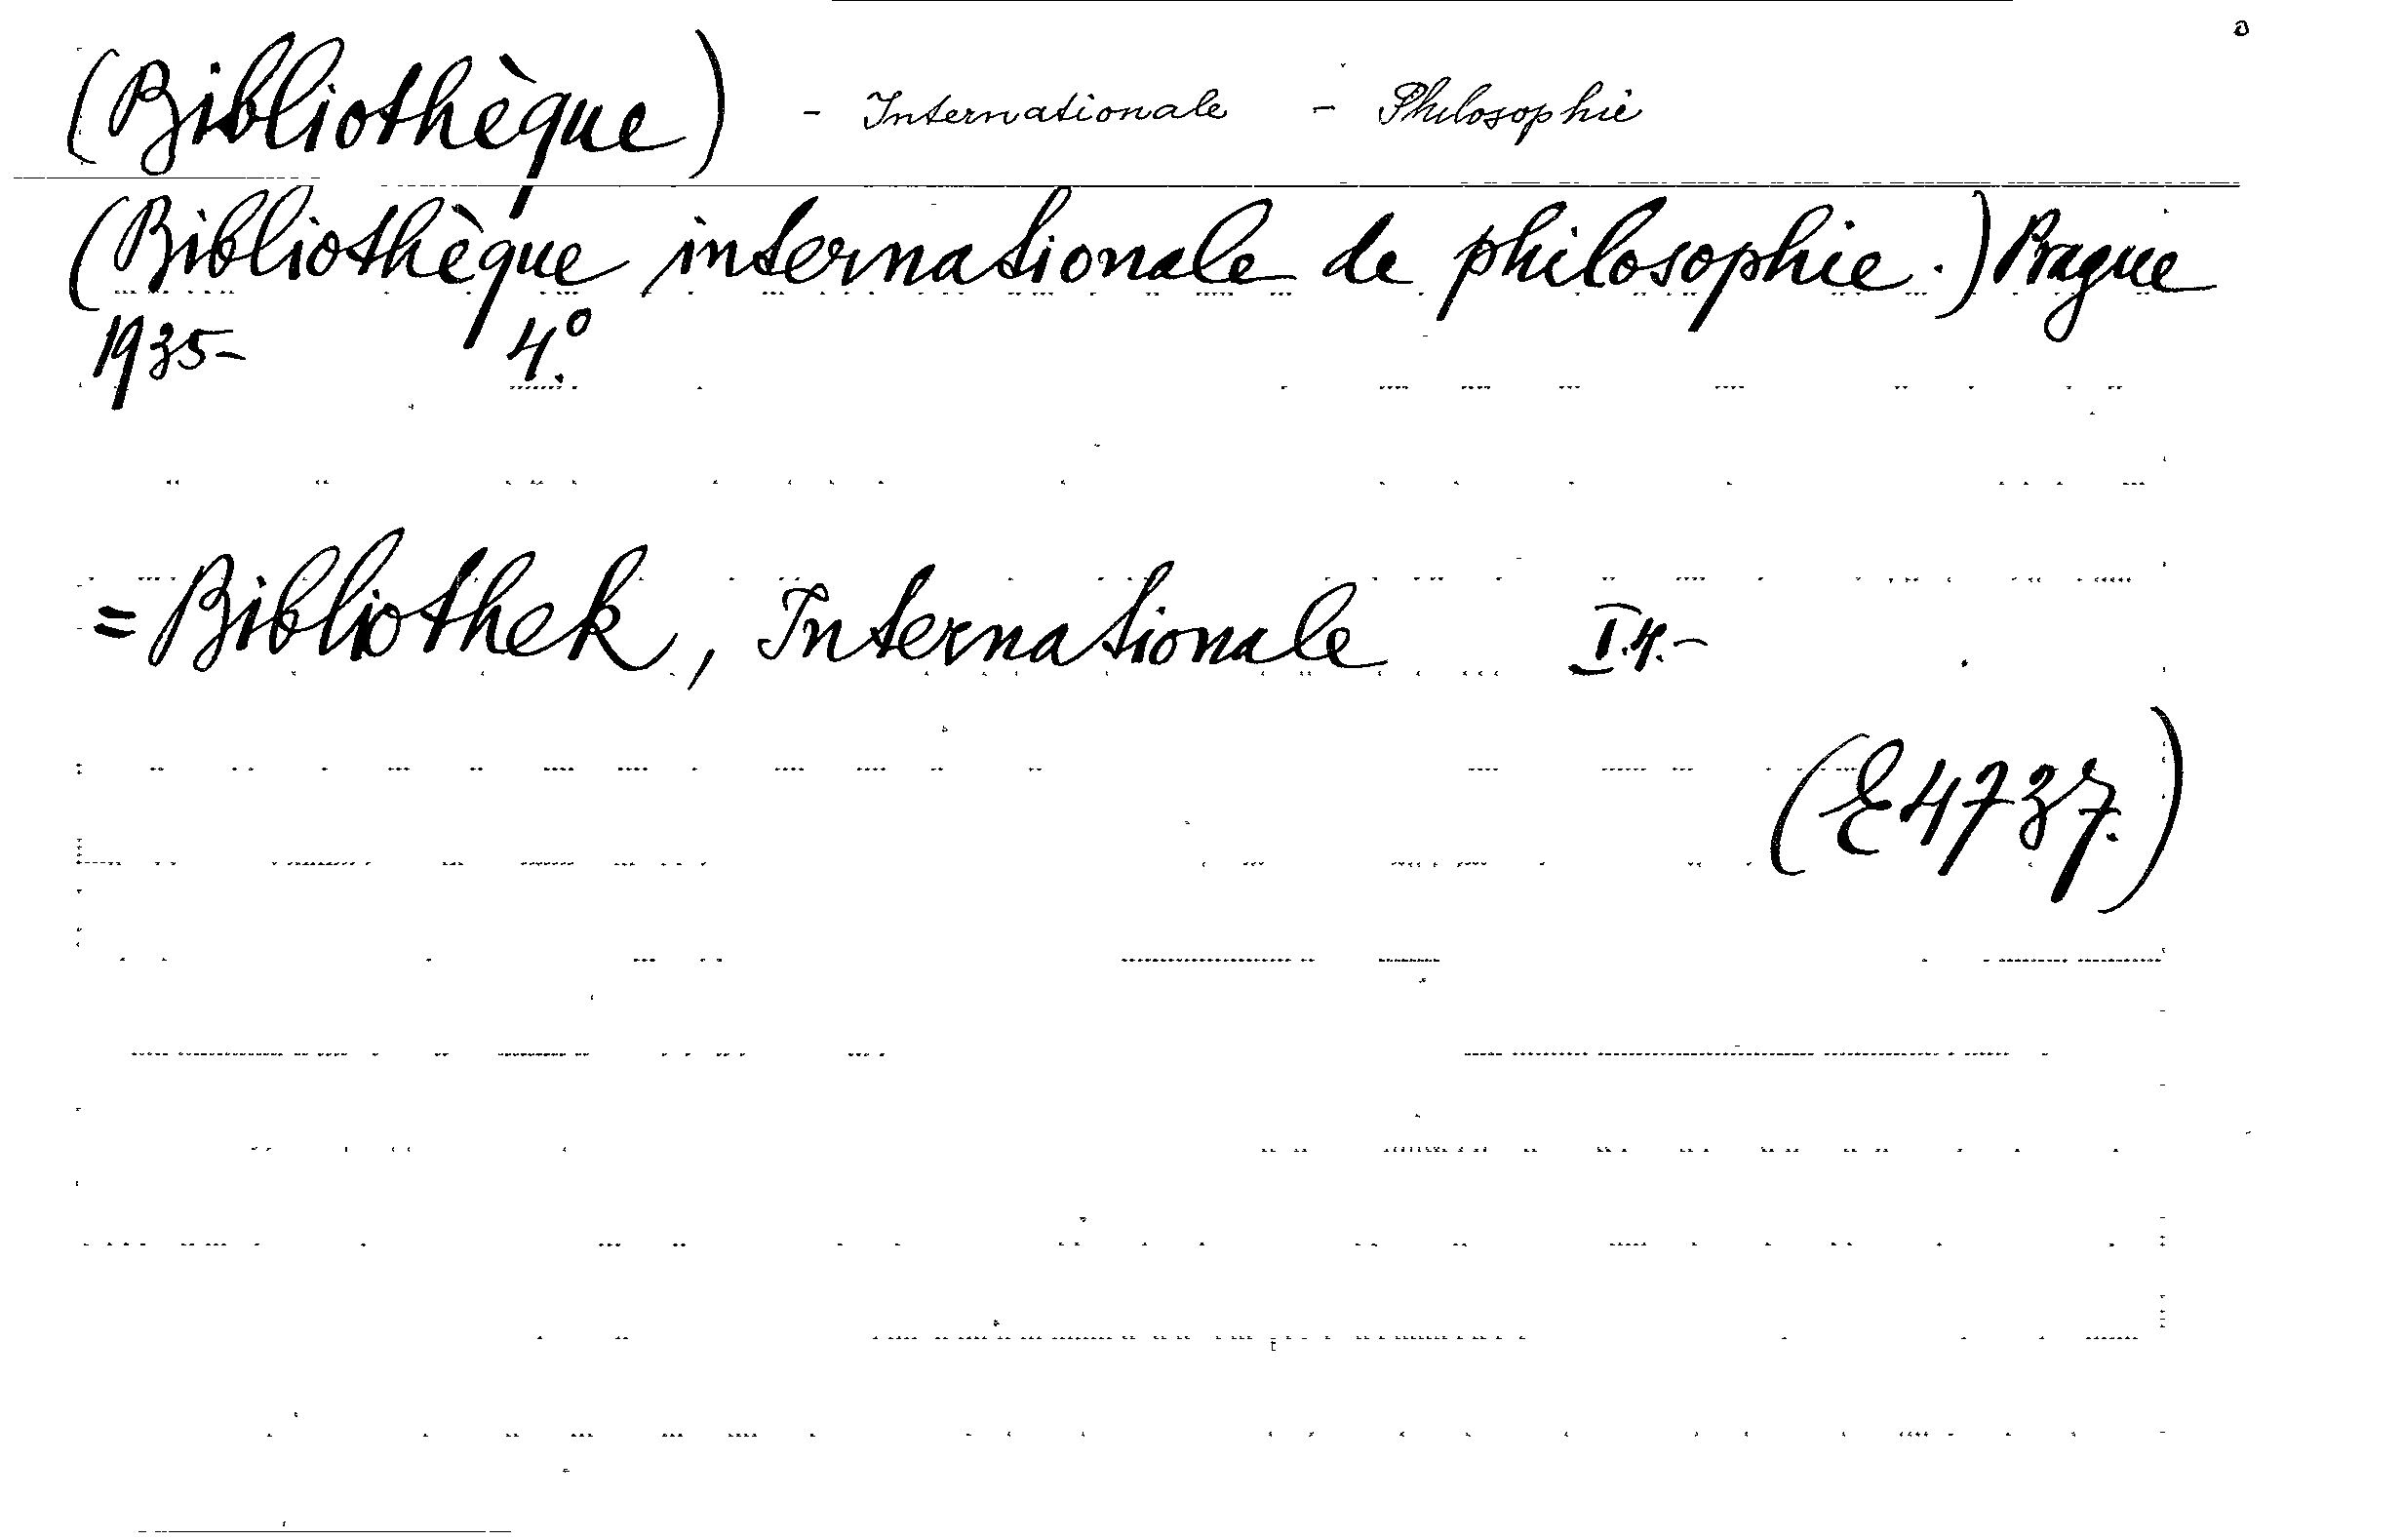 (Bibliothèque) - Internationale - Philosophie
(Bibliothèque internationale de philosophie.) Prague
1935- 4°.
=Bibliothek, Internationale I.4.-
(E4737.)